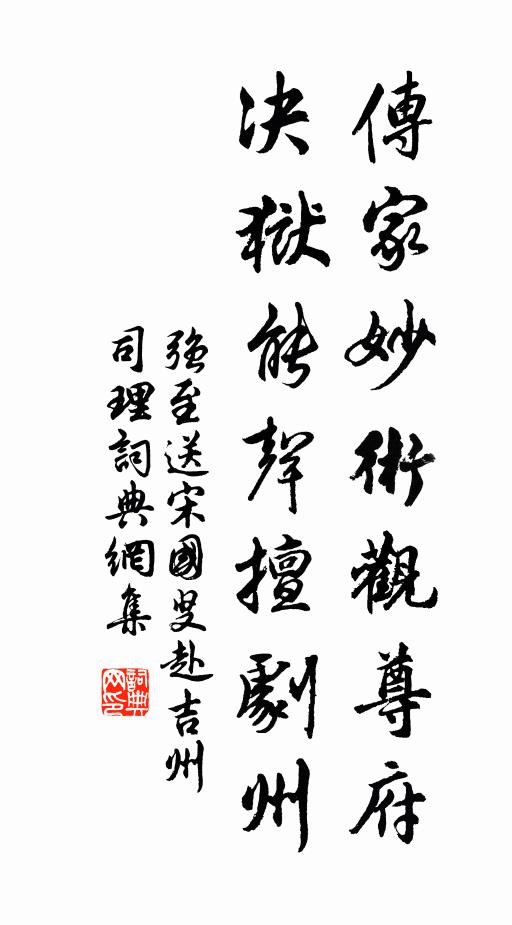 傳家妙術觀尊府
决獄能聲擅劇州
強至送宋國叟赴吉州
司理詞典網集
詞典网印